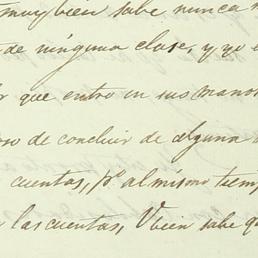 muy bien sabe nunca
de ninguna clase, y yo
que entro en sus manos
de concluir de alguna
cuentas, p.º al mismo tiemp
las cuentas, V bien sabe q